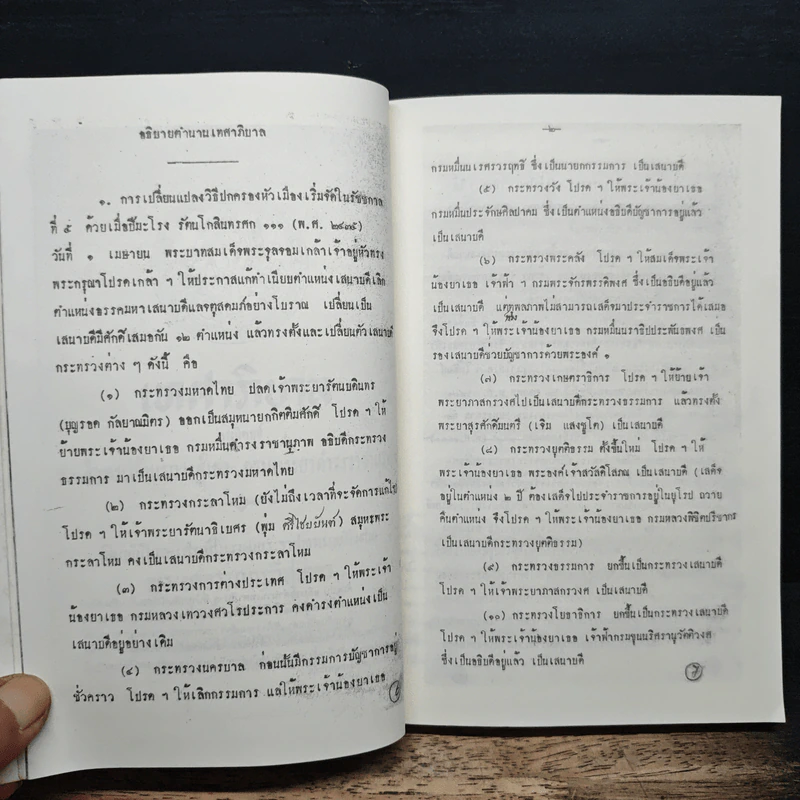 อธิบายตำนานเทศาภิบาล
๑. การเปลี่ยนแปลงวิธีปกครองหัวเมืองเริ่มจัดในรัชชกาล
ที่ ๕ ด้วยเมื่อปีมะโรง รัตนโกสินทรศก ๑๑๑ (พ.ศ. ๒๔๓๕)
วันที่ ๑ เมษายน พระบาทสมเด็จพระจุลจอมเกล้าเจ้าอยู่หัวทรง
พระกรุณาโปรดเกล้า ฯ ให้ประกาศแก้ทำเนียบตำแหน่งเสนาบดีเลิก
ตำแหน่งอรรคมหาเสนาบดีแลจตุสดมภ์อย่างโบราณ เปลี่ยนเป็น
เสนาบดีมีศักดิ์เสมอกัน ๑๒ ตำแหน่ง แล้วทรงตั้งและเปลี่ยนตัวเสนาบดี
กระทรวงต่าง ๆ ดังนี้ คือ
(๑) กระทรวงมหาดไทย ปลดเจ้าพระยารัตนบดินทร
(บุญรอด กัลยาณมิตร) ออกเป็นสมุหนายกกิตติมศักดิ์ โปรด ฯ ให้
ย้ายพระเจ้าน้องยาเธอ กรมหมื่นดำรงราชานุภาพ อธิบดีกระทรวง
ธรรมการ มาเป็นเสนาบดีกระทรวงมหาดไทย
(๒) กระทรวงกระลาโหม (ยังไม่ถึงเวลาที่จะจัดการแก้ไข)
โปรด ฯ ให้เจ้าพระยารัตนาธิเบศร (พุ่ม ศรีไชยยันต์) สมุหพระ
กระลาโหม คงเป็นเสนาบดีกระทรวงกระลาโหม
(๓) กระทรวงการต่างประเทศ โปรด ฯ ให้พระเจ้า
น้องยาเธอ กรมหลวงเทววงศวโรประการ คงดำรงตำแหน่งเป็น
เสนาบดีอยู่อย่างเดิม
(๔) กระทรวงนครบาล ก่อนนั้นมีกรรมการบัญชาการอยู่
ชั่วคราว โปรด ฯ ให้เลิกกรรมการ แลให้พระเจ้าน้องยาเธอ
๒
กรมหมื่นนเรศรวรฤทธิ์ ซึ่งเป็นนายกกรรมการ เป็นเสนาบดี
(๕) กระทรวงวัง โปรด ฯ ให้พระเจ้าน้องยาเธอ
กรมหมื่นประจักษ์ศิลปาคม ซึ่งเป็นตำแหน่งอธิบดีบัญชาการอยู่แล้ว
เป็นเสนาบดี
(๖) กระทรวงพระคลัง โปรด ฯ ให้สมเด็จพระเจ้า
น้องยาเธอ เจ้าฟ้า ฯ กรมพระจักรพรรดิพงศ ซึ่งเป็นอธิบดีอยู่แล้ว
เป็นเสนาบดี แต่ทุพลภาพไม่สามารถเสด็จมาประจำราชการได้เสมอ
จึงโปรด ฯ ให้พระเจ้าน้องยาเธอ กรมหมื่นนราธิปประพันธพงศ เป็น
รองเสนาบดีช่วยบัญชาการด้วยพระองค์ ๑
(๗) กระทรวงเกษตราธิการ โปรด ฯ ให้ย้ายเจ้า
พระยาภาสกรวงศไปเป็นเสนาบดีกระทรวงธรรมการ แล้วทรงตั้ง
พระยาสุรศักดิ์มนตรี (เจิม แสงชูโต) เป็นเสนาบดี
(๘) กระทรวงยุตติธรรม ตั้งขึ้นใหม่ โปรด ฯ ให้
พระเจ้าน้องยาเธอ พระองค์เจ้าสวัสดิโสภณ เป็นเสนาบดี (เสด็จ
อยู่ในตำแหน่ง ๒ ปี ต้องเสด็จไปประจำราชการอยู่ในยุโรป ถวาย
คืนตำแหน่ง จึงโปรด ฯ ให้พระเจ้าน้องยาเธอ กรมหลวงพิชิตปรีชากร
เป็นเสนาบดีกระทรวงยุตติธรรม)
(๙) กระทรวงธรรมการ ยกขึ้นเป็นกระทรวงเสนาบดี
โปรด ฯ ให้เจ้าพระยาภาสกรวงศ เป็นเสนาบดี
(๑๐) กระทรวงโยธาธิการ ยกขึ้นเป็นกระทรวงเสนาบดี
โปรด ฯ ให้พระเจ้าน้องยาเธอ เจ้าฟ้ากรมขุนนริศรานุวัดติวงศ
ซึ่งเป็นอธิบดีอยู่แล้ว เป็นเสนาบดี